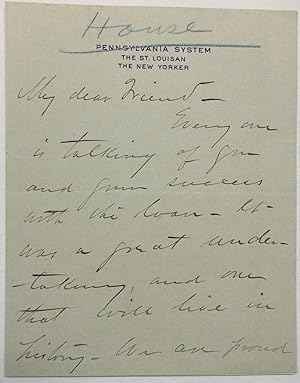 House
PENNSYLVANIA SYSTEM
THE ST. LOUISAN
THE NEW YORKER
My dear Friend -
Every one
is talking of you
and your success
with the loan - It
was a great under-
-taking, and one
that will live in
history - We are proud